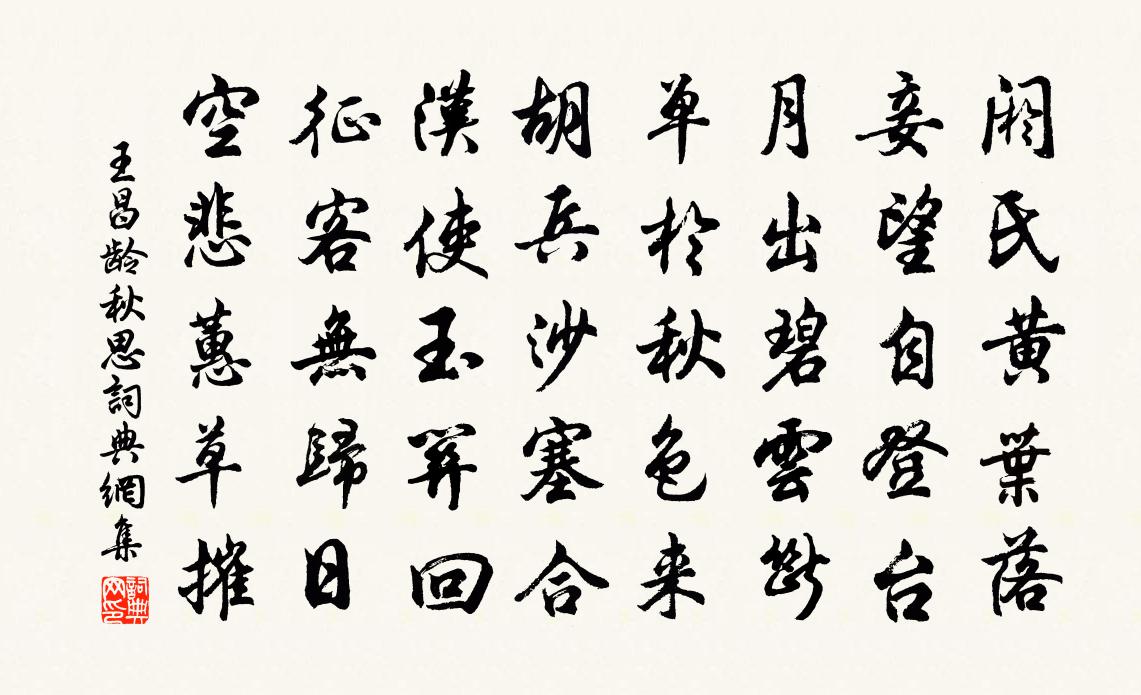 閼氏黃葉落
妾望自登台
月出碧雲斷
單於秋色來
胡兵沙塞合
漢使玉關回
征客無歸日
空悲蕙草摧
王昌齡秋思詞典網集
詞典網印